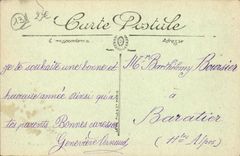 131 25c
Carte Postale
Correspondance
Adresse
je te souhaite une bonne et
heureuse année ainsi qu'à
tes parents. Bonnes caresses
Geneviève Arnaud
Mr Barthélemy Boursier
à
Baratier
(Htes Alpes)